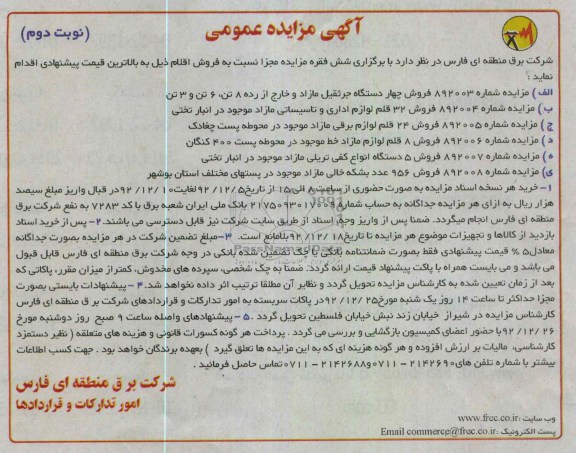 آگهی مزایده عمومی
(نوبت دوم)
شرکت برق منطقه ای فارس در نظر دارد با برگزاری شش فقره مزایده مجزا نسبت به فروش اقلام ذیل به بالاترین قیمت پیشنهادی اقدام
نماید :
الف) مزایده شماره ۸۹۲۰۰۳ فروش چهار دستگاه جرثقیل مازاد و خارج از رده ۸ تن، ۶ تن و ۳ تن
ب) مزایده شماره ۸۹۲۰۰۴ فروش ۳۲ قلم لوازم اداری و تاسیساتی مازاد موجود در انبار تختی
ج) مزایده شماره ۸۹۲۰۰۵ فروش ۲۴ قلم لوازم برقی مازاد موجود در محوطه پست چغادک
د) مزایده شماره ۸۹۲۰۰۶ فروش ۸ قلم لوازم مازاد خط موجود در محوطه پست ۴۰۰ کنگان
ه) مزایده شماره ۸۹۲۰۰۷ فروش ۵ دستگاه انواع کفی تریلی مازاد موجود در انبار تختی
ی) مزایده شماره ۸۹۲۰۰۸ فروش ۹۵۶ عدد بشکه خالی مازاد موجود در پستهای مختلف استان بوشهر
۱- خرید هر نسخه اسناد مزایده به صورت حضوری از ساعت ۸ الی ۱۵ از تاریخ ۹۲/۱۲/۵ لغایت ۹۲/۱۲/۱۰ در قبال واریز مبلغ سیصد
هزار ریال به ازای هر مزایده جداگانه به حساب شماره ۲۱۷۵۰۹۳۰۱۷۰۰۹ بانک ملی ایران شعبه برق با کد ۷۲۸۳ به نفع شرکت برق
منطقه ای فارس انجام میگردد. ضمنا پس از واریز وجه، اسناد از طریق سایت شرکت نیز قابل دسترسی می باشند. ۲- پس از خرید اسناد
بازدید از کالاها و تجهیزات موضوع هر مزایده تا تاریخ ۹۲/۱۲/۱۸ بلامانع است. ۳- مبلغ تضمین شرکت در هر مزایده بصورت جداگانه
معادل ۵% قیمت پیشنهادی فقط بصورت ضمانتنامه بانکی یا چک تضمین شده بانکی در وجه شرکت برق منطقه ای فارس قابل قبول
می باشد و می بایست همراه با پاکت پیشنهاد قیمت ارائه گردد. ضمنا به چک شخصی، سپرده های مخدوش، کمتر از میزان مقرر، پاکاتی که
بعد از زمان تعیین شده به کارشناس مزایده تحویل گردد و نظایر آن مطلقا ترتیب اثر داده نخواهد شد. ۴- پیشنهادات بایستی بصورت
مجزا حداکثر تا ساعت ۱۴ روز یک شنبه مورخ ۹۲/۱۲/۲۵ در پاکات سربسته به امور تدارکات و قراردادهای شرکت برق منطقه ای فارس
کارشناس مزایده در شیراز خیابان زند نبش خیابان فلسطین تحویل گردد. ۵- پیشنهادهای واصله ساعت ۹ صبح روز دوشنبه مورخ
۹۲/۱۲/۲۶ با حضور اعضای کمیسیون بازگشایی و بررسی می گردد. پرداخت هر گونه کسورات قانونی و هزینه های متعلقه (نظیر دستمزد
کارشناسی، مالیات بر ارزش افزوده و هر گونه هزینه ای که به این مزایده ها تعلق گیرد) بعهده برندگان خواهد بود. جهت کسب اطلاعات
بیشتر با شماره تلفن های ۲۱۴۲۶۹۰-۰۷۱۱ و ۲۱۴۲۶۸۸-۰۷۱۱ تماس حاصل فرمائید.
شرکت برق منطقه ای فارس
امور تدارکات و قراردادها
وب سایت: www.frec.co.ir
پست الکترونیک: Email commerce@frec.co.ir